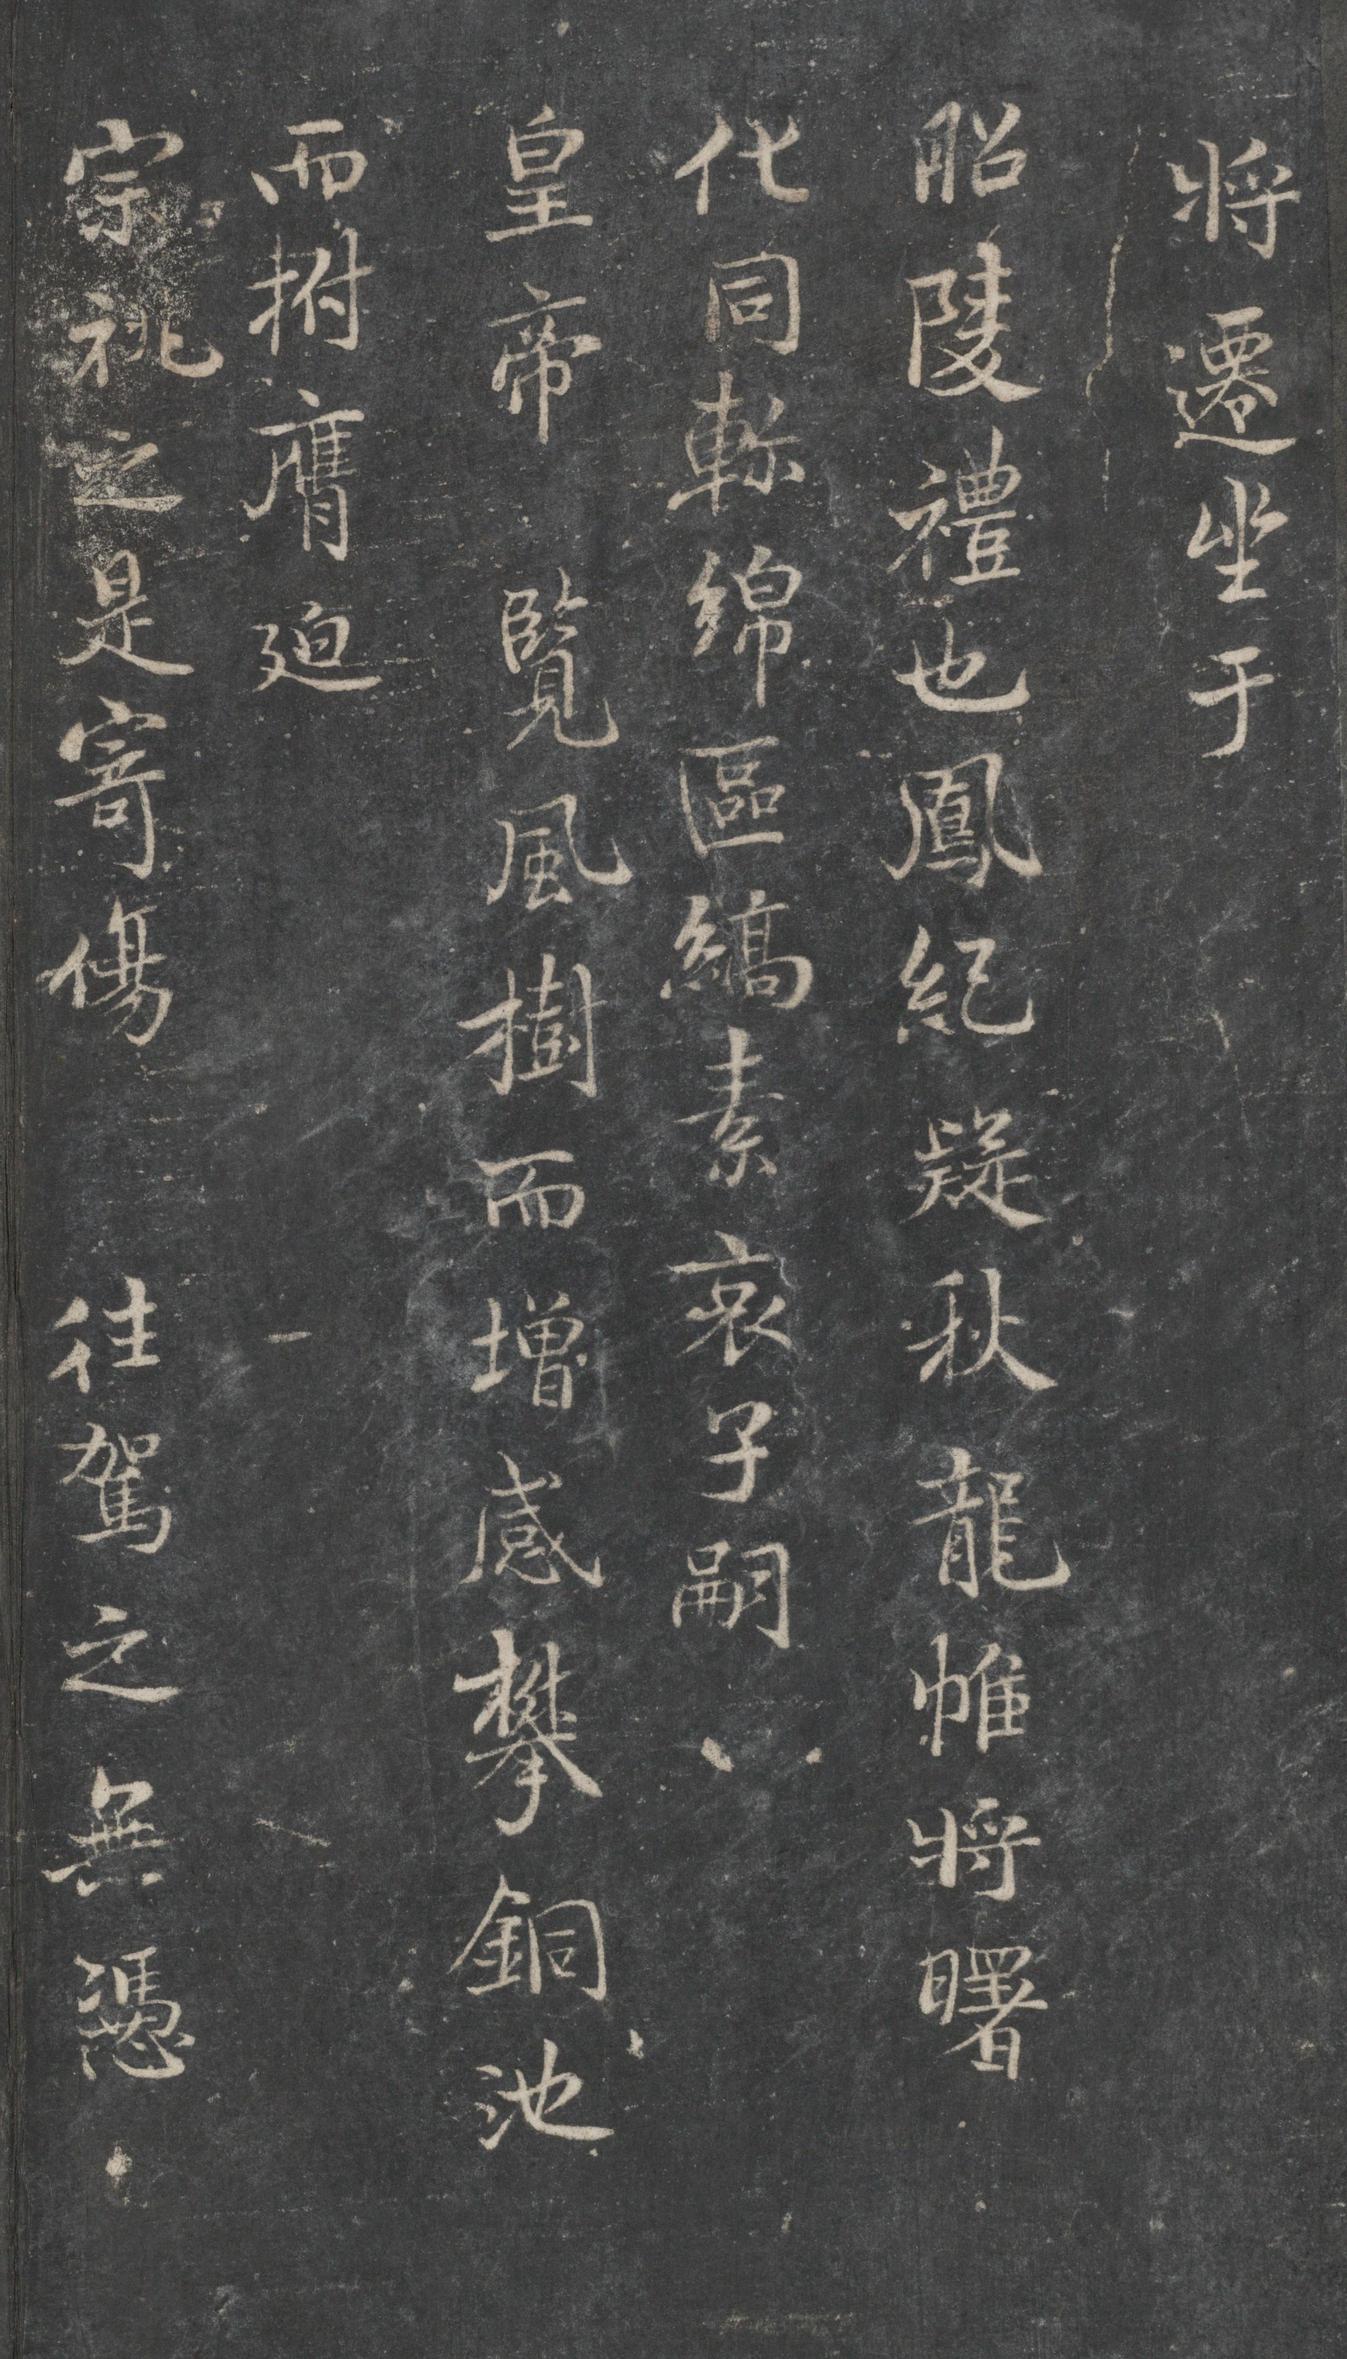 將遷坐于
昭陵禮也鳳紀疑秋龍帷將曙
化同軫綿區縞素哀子嗣
皇帝覽風樹而增感攀銅池
而拊膺廹
宗祧之是寄傷往駕之無憑